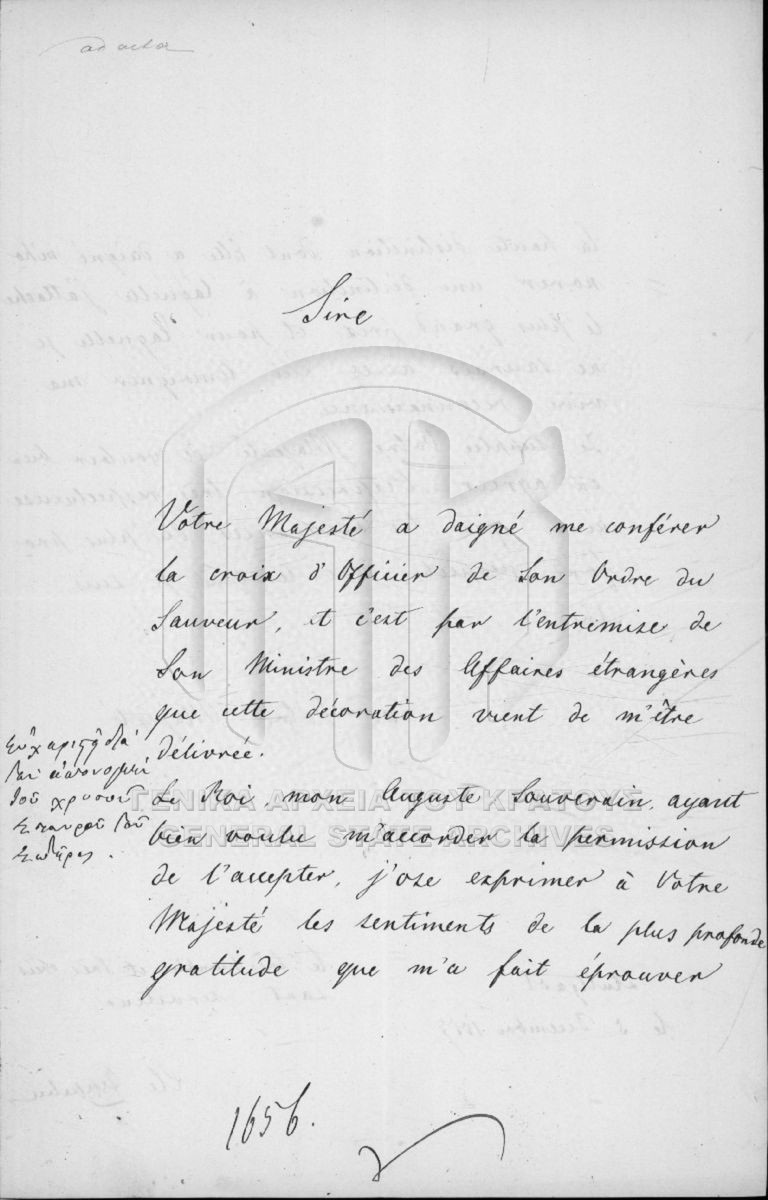 ad acta
Sire
Votre Majesté a daigné me conférer
la croix d'Officier de Son Ordre du
Sauveur, et c'est par l'entremise de
Son Ministre des Affaires étrangères
que cette décoration vient de m'être
délivrée.
Le Roi, mon Auguste Souverain, ayant
bien voulu m'accorder la permission
de l'accepter, j'ose exprimer à Votre
Majesté les sentiments de la plus profonde
gratitude que m'a fait éprouver
Εὐχαριστεῖ διὰ
τοῦ χρυσοῦ
Σταυροῦ τοῦ
Σωτῆρος.
ΓΕΝΙΚΑ ΑΡΧΕΙΑ ΤΟΥ ΚΡΑΤΟΥΣ
GENERAL STATE ARCHIVES
1656.